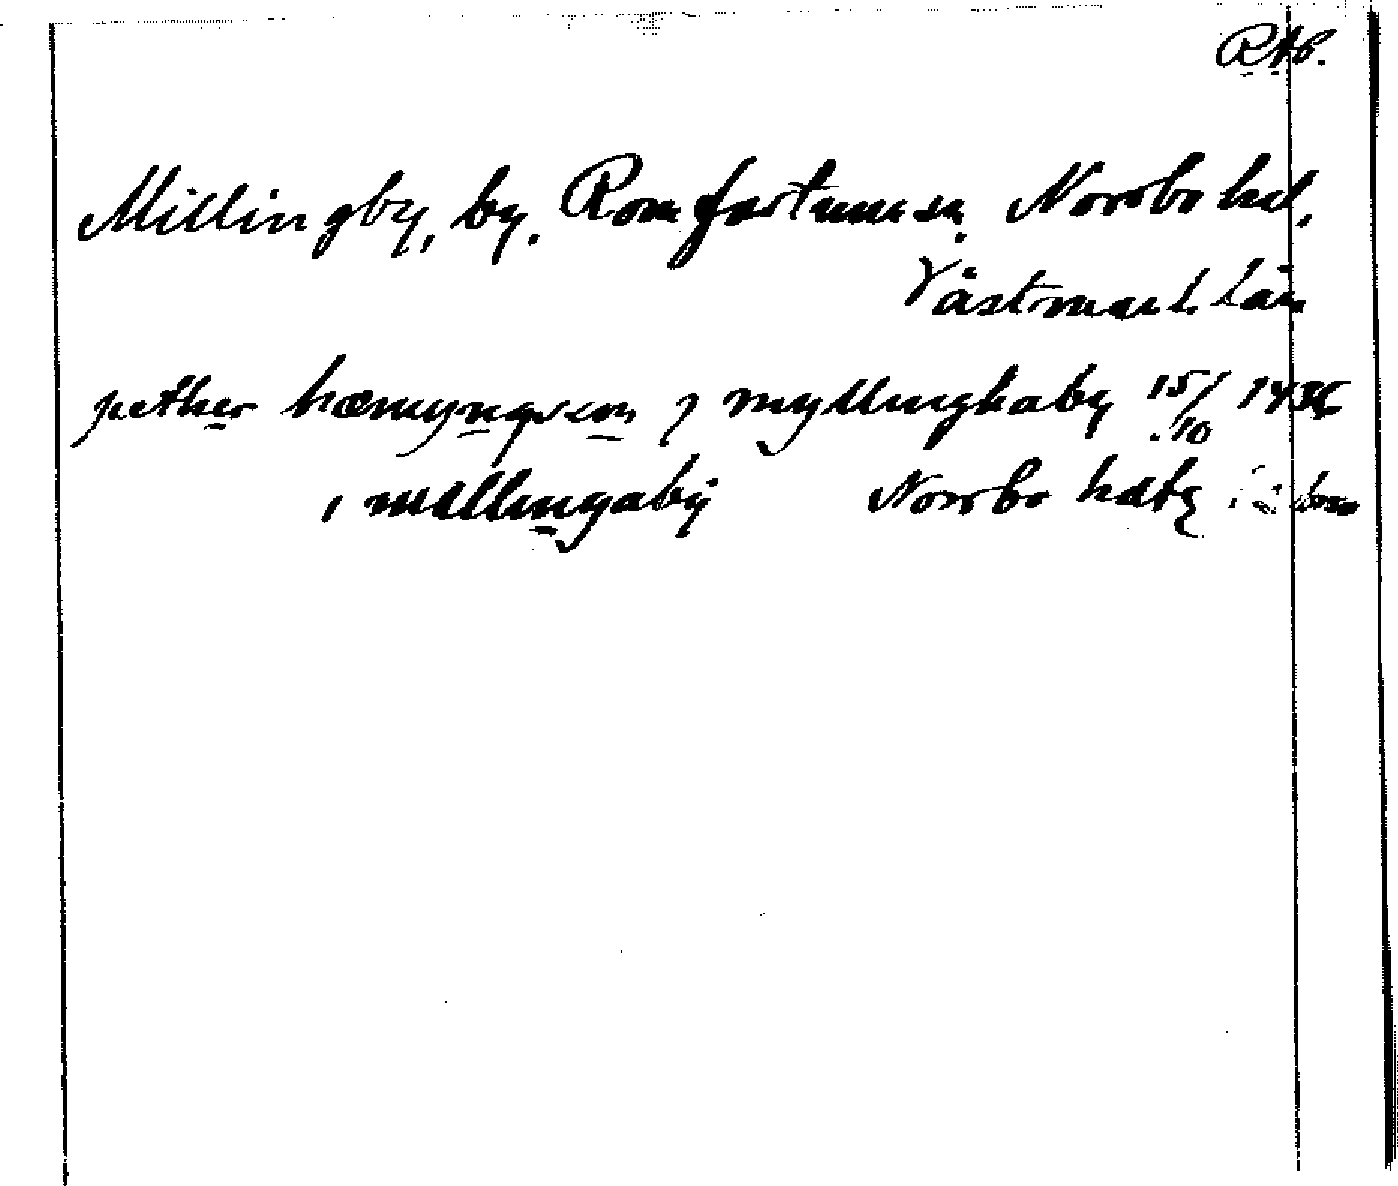 RAp.
Millingby, by. Romfartuna sn. Norrbo hd,
Västmanl. län
pether hæmyngxson j myllingxaby 15/10 1436
i mallingaby Norrbo hdtg